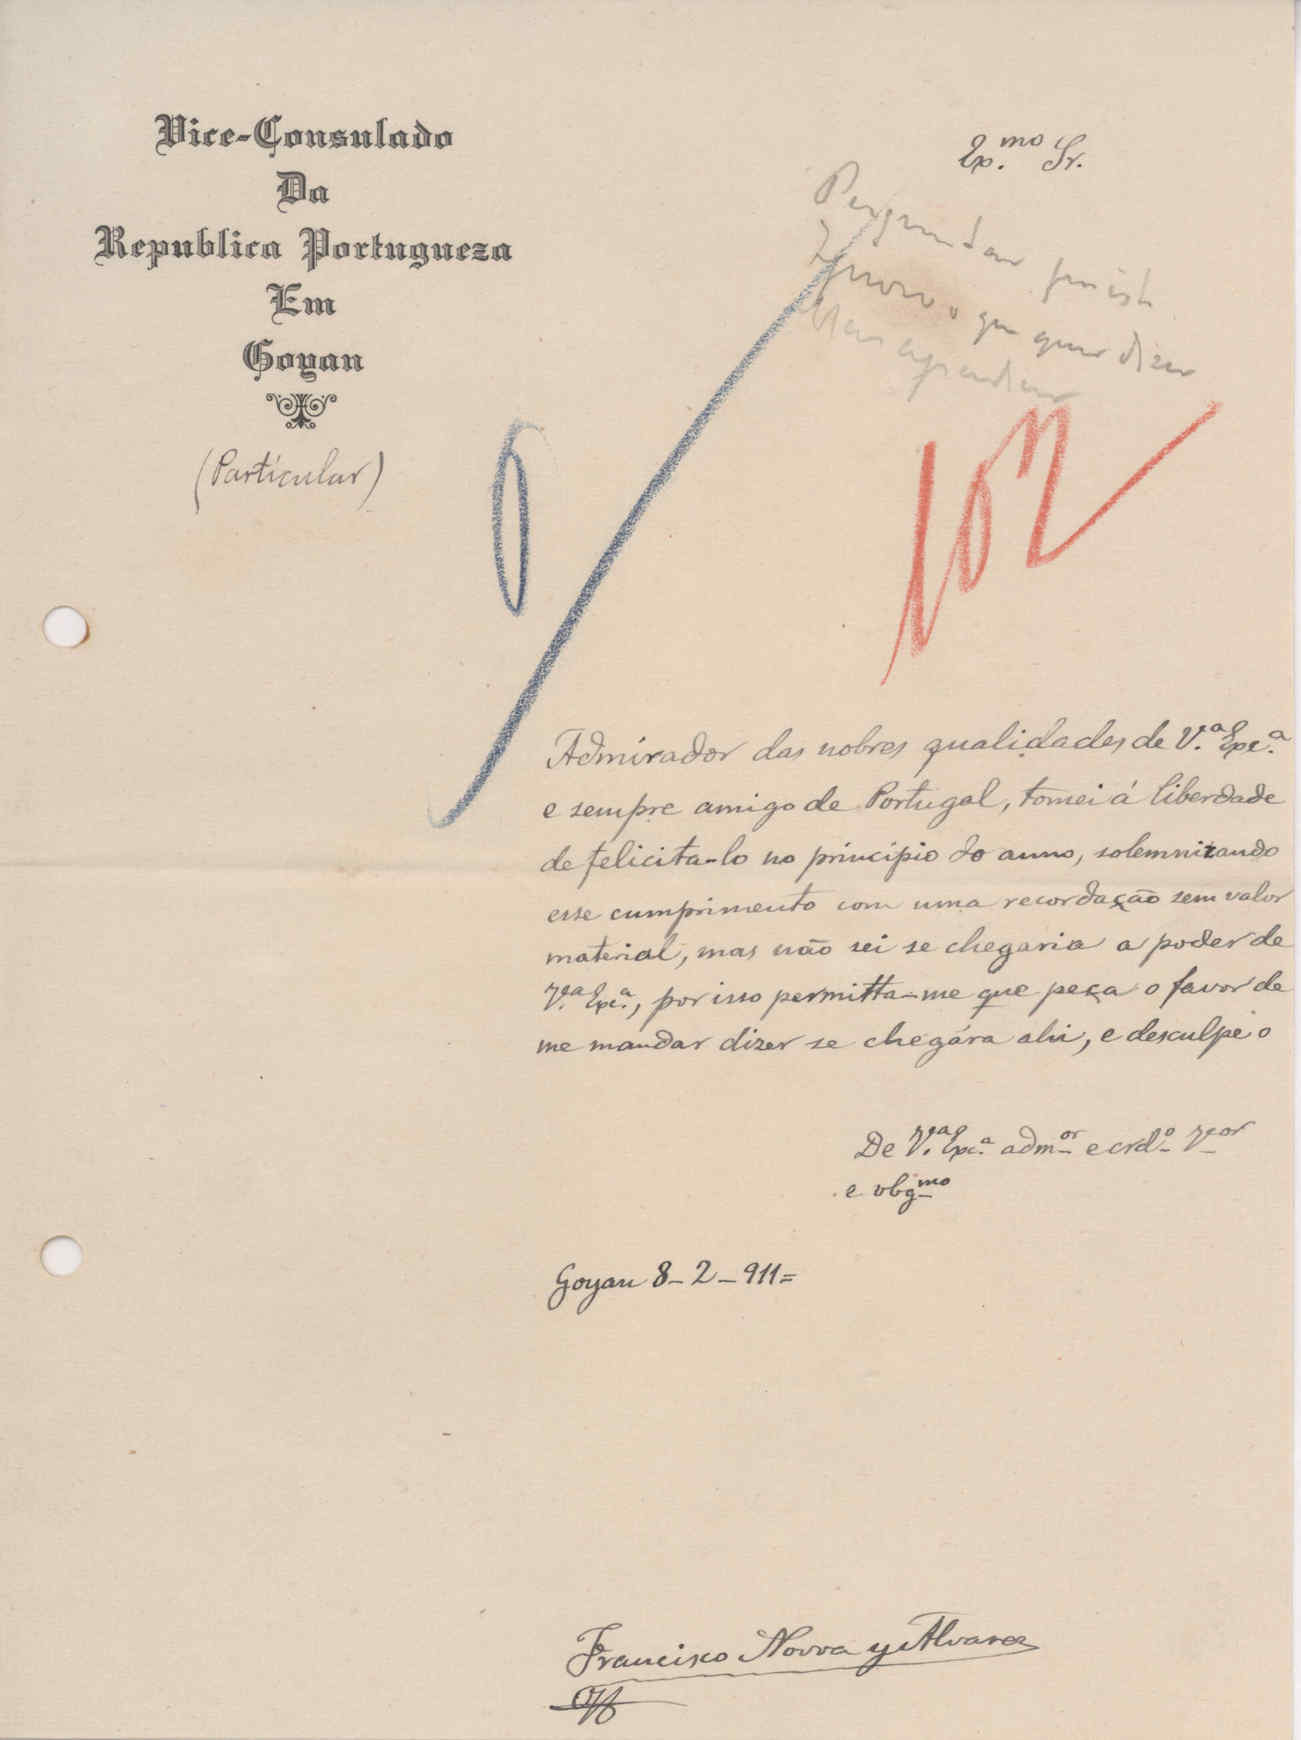 Vice-Consulado
Da
Republica Portugueza
Em
Goyan
(Particular)
Ex.mo Sr.
Perguntar
Ignoro o que quer dizer
102
Admirador das nobres qualidades de V.ª Exc.ª
e sempre amigo de Portugal, tomei á liberdade
de felicita-lo no principio do anno, solemnizando
esse cumprimento com uma recordação sem valor
material, mas não sei se chegaria a poder de
V.ª Exc.ª, por isso permitta-me que peça o favor de
me mandar dizer se chegára ahi, e desculpe o
De V.ª Exc.ª adm.or e crd.o V.or
e obg.mo
Goyan 8-2-911=
Francisco Novoa y Alvarez